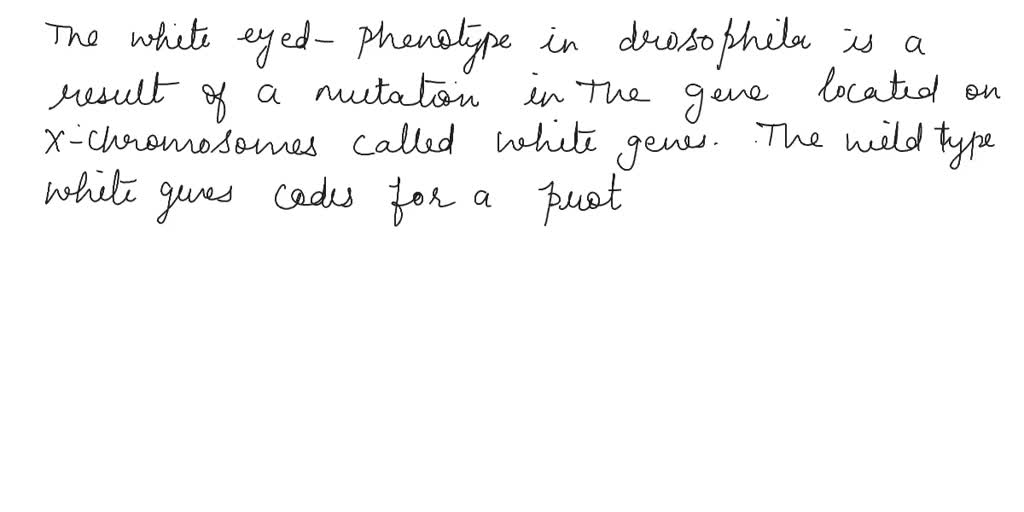 The white eyed- phenotype in drosophila is a
result of a mutation in The gene located on
X-chromosomes called white genes. The wild type
white genes codes for a prot